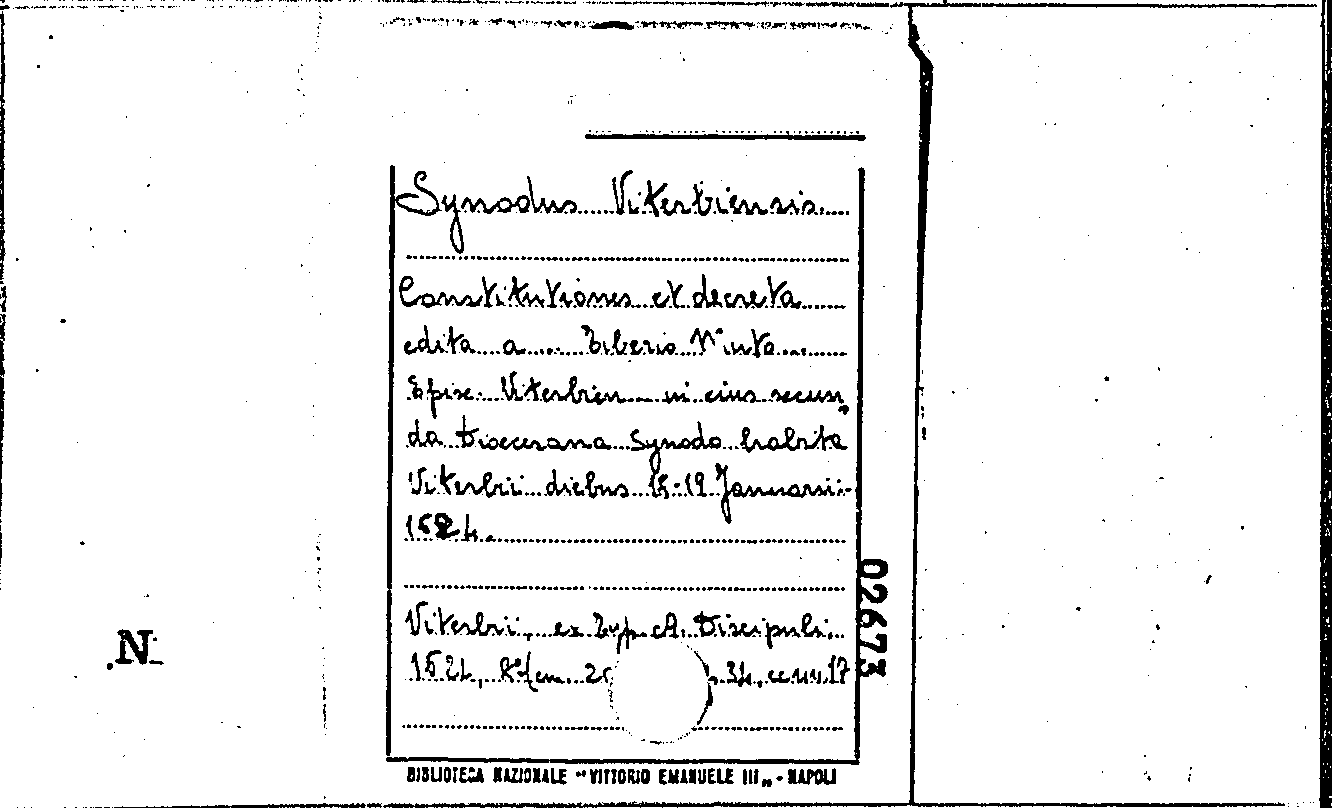 Synodus Viterbiensis
Constitutiones et decreta
edita a .... Tiberio Muto ....
Episc. Viterbien ... in eius secun,
da Dioecesana Synodo habita
Viterbii diebus 15-19 Januarii
1624.
Viterbii, ex Typ. A. Discipuli,
1624, 8° (cm. 34,
02673
N
BIBLIOTECA NAZIONALE "VITTORIO EMANUELE III„ - NAPOLI